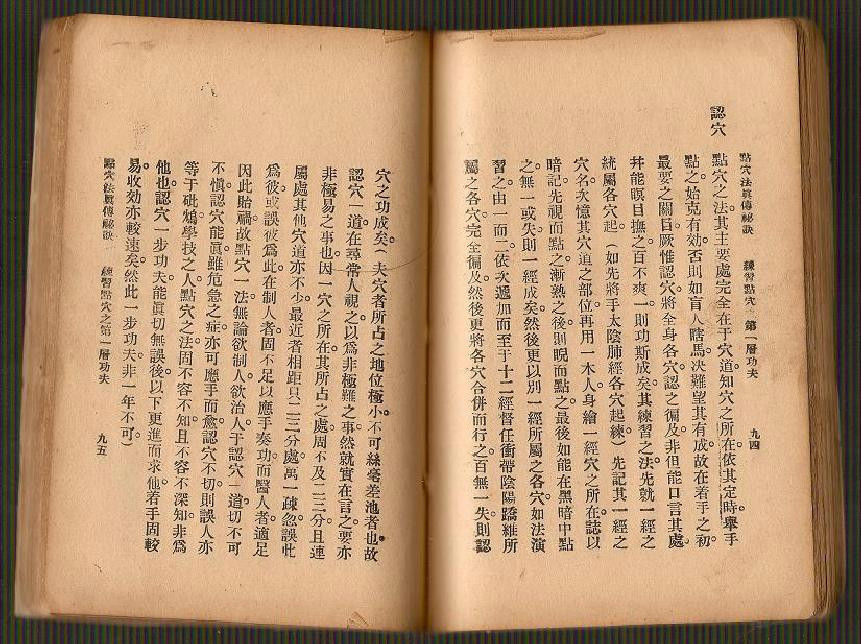 點穴法眞傳祕訣　練習點穴之第一層功夫　九四
認穴
點穴之法。其主要處完全在于穴道。知穴之所在。依其定時。舉手
點之。始克有効。否則如盲人瞎馬。決難望其有成。故在着手之初。
最要之關目。厥惟認穴。將全身各穴。認之徧及。非但能口言其處。
幷能瞑目撫之。百不爽一。則功斯成矣。其練習之法。先就一經之
統屬各穴起。(如先將手太陰肺經各穴起練)先記其一經之
穴名。次憶其穴道之部位。再用一木人。身繪一經穴之所在。誌以
暗記。先視而點之。漸熟之後。則睨而點之。最後如能在黑暗中點
之。無一或失。則一經成矣。然後更以別一經所屬之各穴。如法演
習之。由一而二。依次遞加。而至于十二經督任衝帶陰陽蹻維所
屬之各穴。完全徧及。然後更將各穴合併而行之。百無一失。則認
穴之功成矣。(夫穴者所占之地位極小。不可絲毫差池者也。故
認穴一道。在尋常人視之。以爲非極難之事。然就實在言之。要亦
非極易之事也。因一穴之所在。其所占之處。周不及二三分。且連
屬處其他穴道亦不少。最近者相距只二三分處。萬一疎忽。誤此
爲彼。或誤彼爲此。在制人者固不足以應手奏功。而醫人者適足
因此貽禍。故點穴一法。無論欲制人欲治人。于認穴一道。切不可
不愼。認穴能眞。雖危急之症。亦可應手而愈。認穴不切。則誤人亦
等于砒鴆。學技之人。點穴之法固不容不知。且不容不深知。非爲
他也。認穴一步功夫。能眞切無誤。後以下更進而求他着手固較
易。收効亦較速矣。然此一步功夫。非一年不可)
點穴法眞傳祕訣　練習點穴之第一層功夫　九五